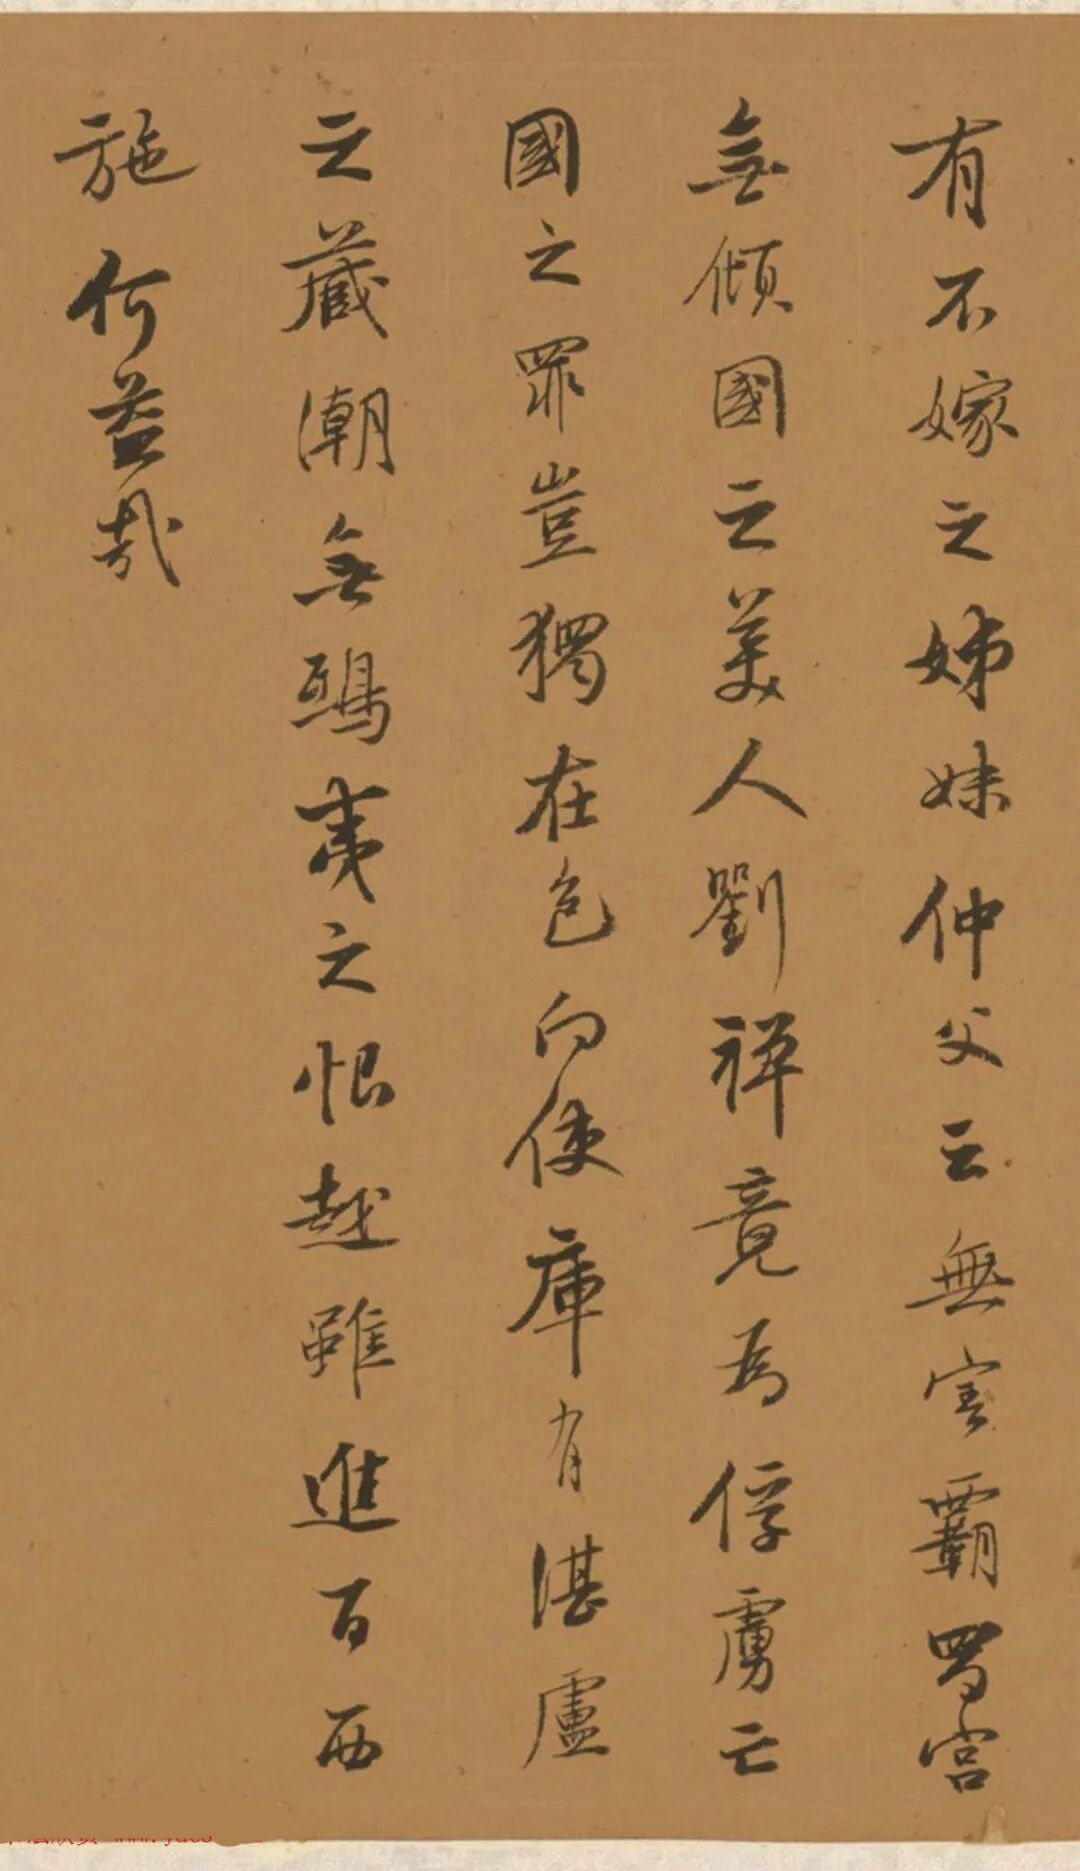 有不嫁之姊妹仲父云無害霸蜀宮
無傾國之美人劉禪竟為俘虜亡
國之罪豈獨在色向使庫有湛盧
之藏潮無鴟夷之恨越雖進百西
施何益哉